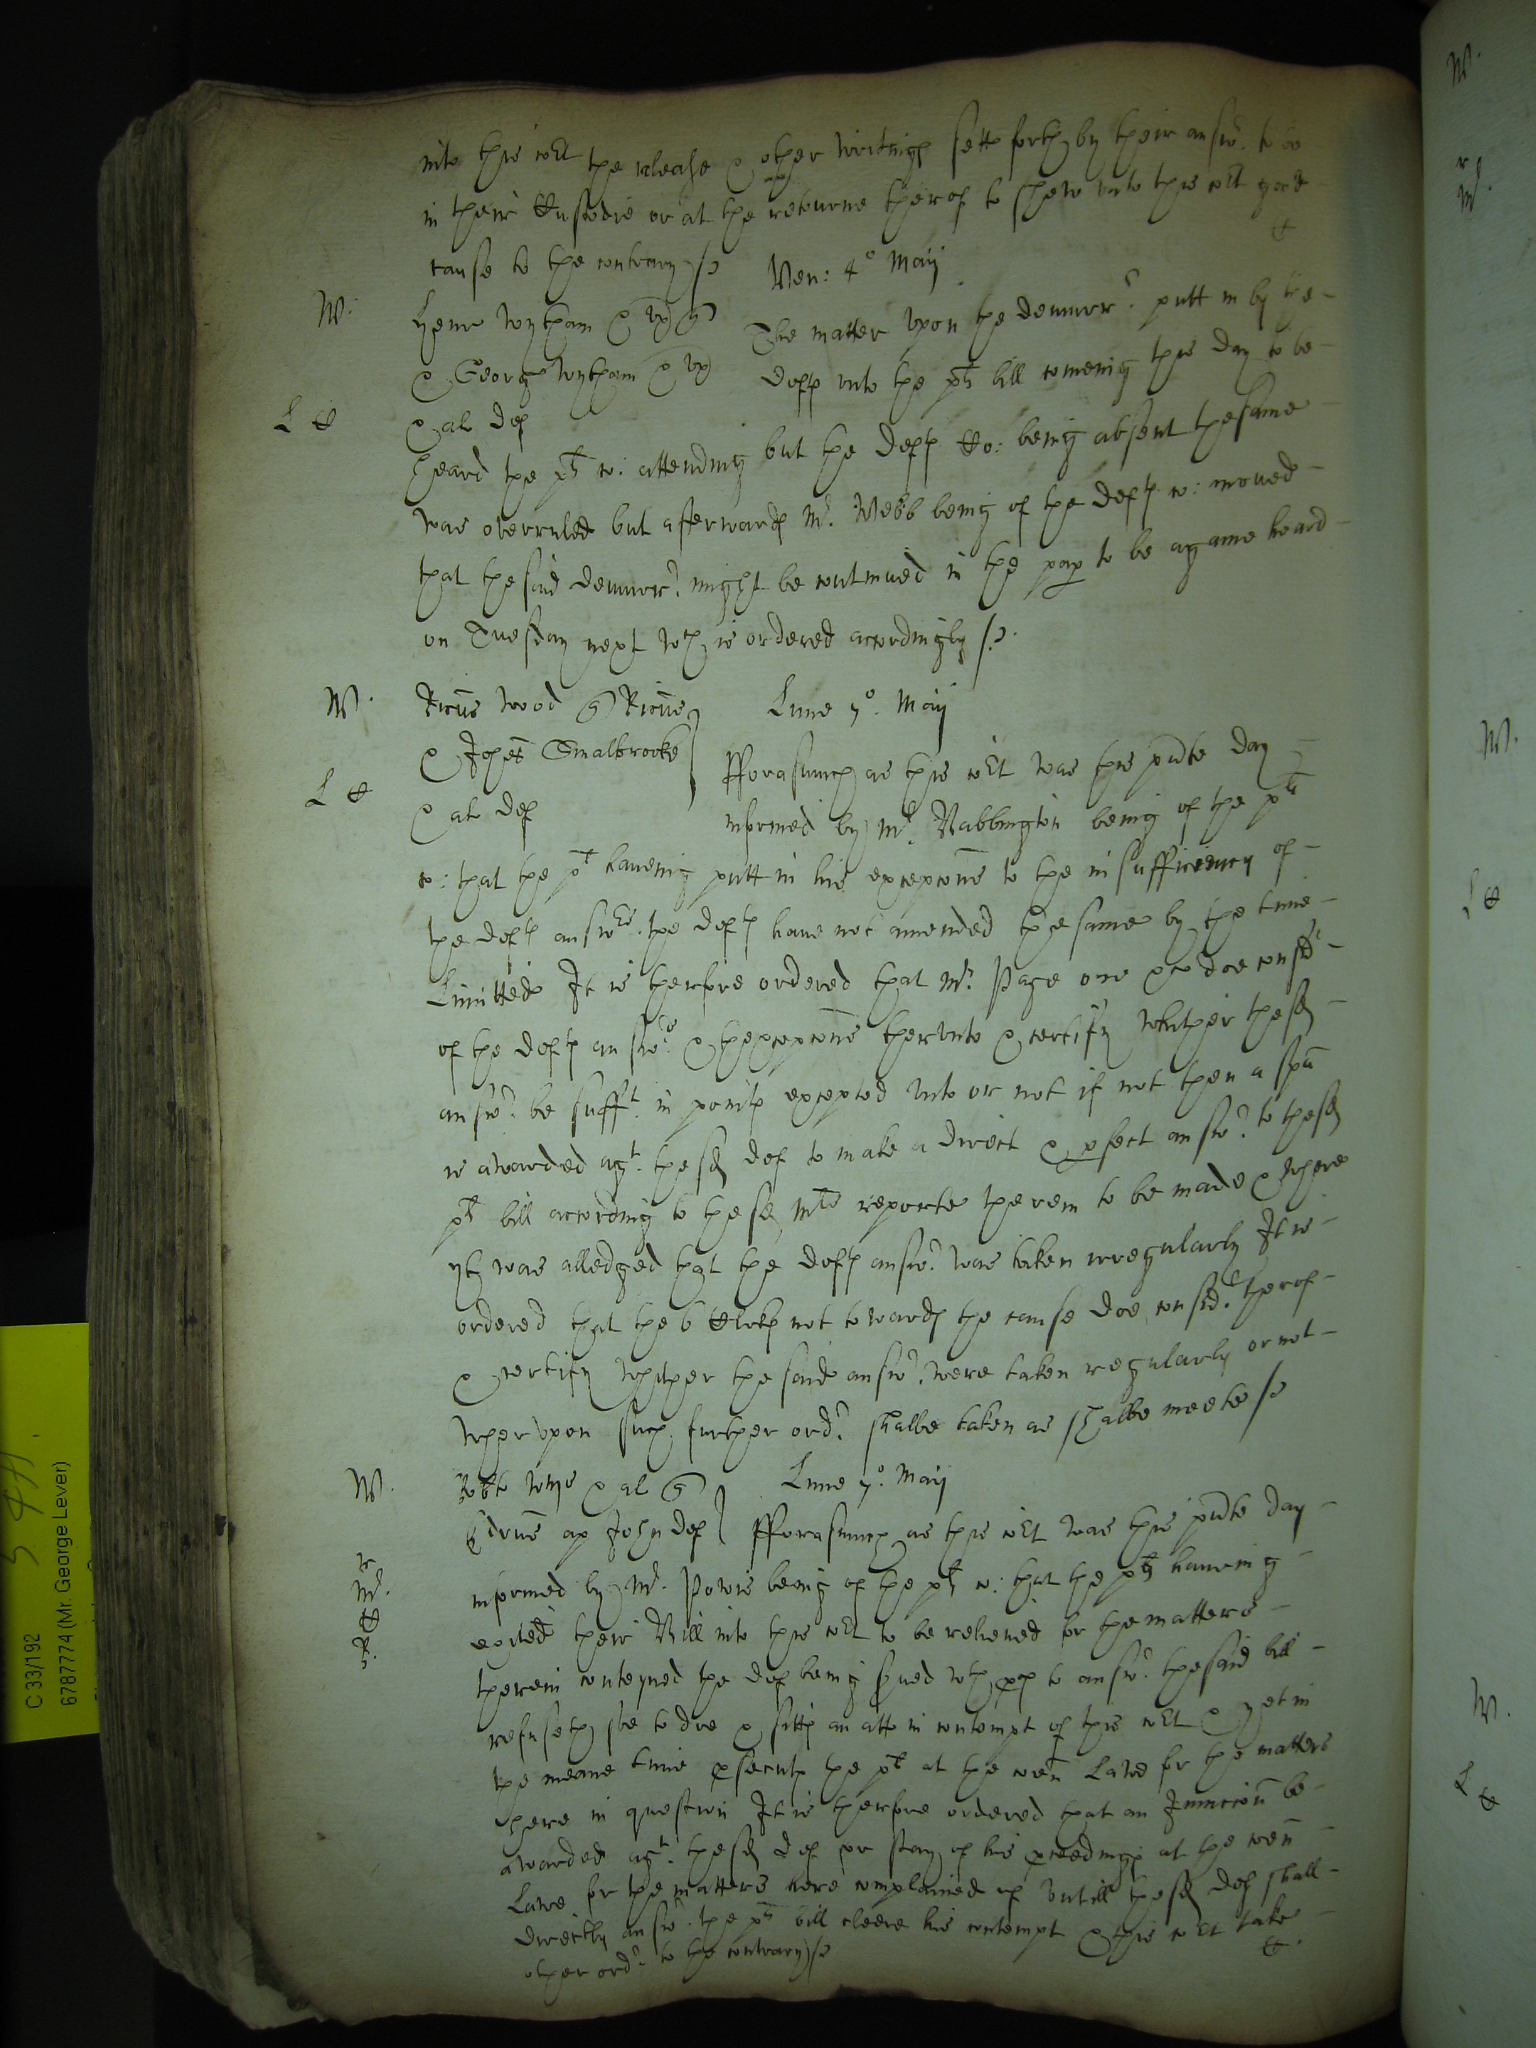 into this cort the release & other writings sett forth by their answ.r to be
in their Custodie or at the retourne therof to shew unto this cort good
cause to the contrary
Ven: 4o Maij
W.
Henr Wytham & ux
& George Wytham & ux
& al def
L
The matter upon the demurr.r putt in by the
defts unto the plts bill comeing this day to be
heard the plts co: attending but the defts Co: being absent the same
was overruled but afterwards Mr. Webb being of the defts co: moved
that the said demurr.r might be continued in the pap to be againe heard
on Tuesday next wch is ordered accordingly
W.
Ricus Wood Ricus
& Johes Smalbrooke
& al def
L
Lune 7o. Maij
Fforasmuch as this cort was this pnte day
informed by Mr. Babbington being of the plts
co: that the plt haveing putt in his excepcons to the insufficiency of
the defts answers. the defts have not amended the same by the time
Limitted It is therfore ordered that Mr. Page one &c doe consider
of the defts answ.rs & thexcepcons therunto & certify whether the sd
answ.r be suff.t in points excepted unto or not if not then a spa
is awarded agt. the sd def to make a direct & pfect answ.r to the sd
plts bill according to the sd Mrs reporte therein to be made & where
yt was alledged that the defts answ.r was taken irregularly It is
ordered that the 6 Clerks not towards the cause doe consider therof
& certify whether the said answ.r were taken regularly or not
wherupon such further ord.r shalbe taken as shalbe meete
W.
Robte Wyse & al
Edrus ap John def
Lune 7o. Maij
Fforasmuch as this cort was this pnte day
r
Mr.
R.
informed by Mr. Powis being of the plts co: that the plts haveing
exited their Bill into this cort to be relieved for the matters
therein conteyned the def being sued wth pces to answ.r the said bill
refuseth soe to doe & sitts an att in contempt of this cort & yet in
the meane time psecuts the plt at the coen Lawe for the matters
here in question It is therfore ordered that an Iniuncion be
awarded agt. the sd def for stay of his pceedings at the coen
Lawe for the matters here complained of untill the sd def shall
directly answ.r the plts bill cleere his contempt & this cort take
other ord.r to the contrary
C 33/192
6787774 (Mr. George Lever)